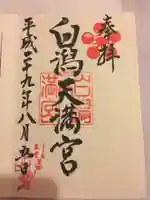 奉拝
白潟天満宮
平成二十九年八月五日